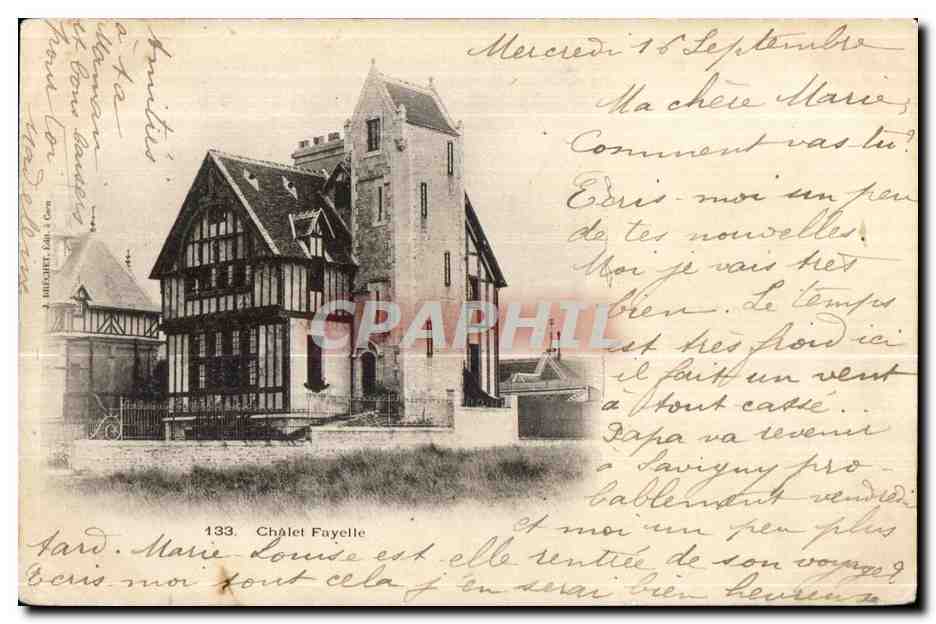 Mercredi 16 Septembre
Ma chère Marie,
Comment vas tu?
Ecris-moi un peu
de tes nouvelles.
Moi je vais très
bien. Le temps
est très froid ici
il fait un vent
à tout cassé...
Papa va revenir
à Savigny pro-
bablement vendredi
et moi un peu plus
tard. Marie Louise est elle rentrée de son voyage?
Ecris moi tout cela j'en serai bien heureuse
Amitiés
à ta
Maman
et bons baisers
pour toi
Madeleine
J. BRÉCHET, Édit. à Caen
CPARPHIL
133. Châlet Fayelle